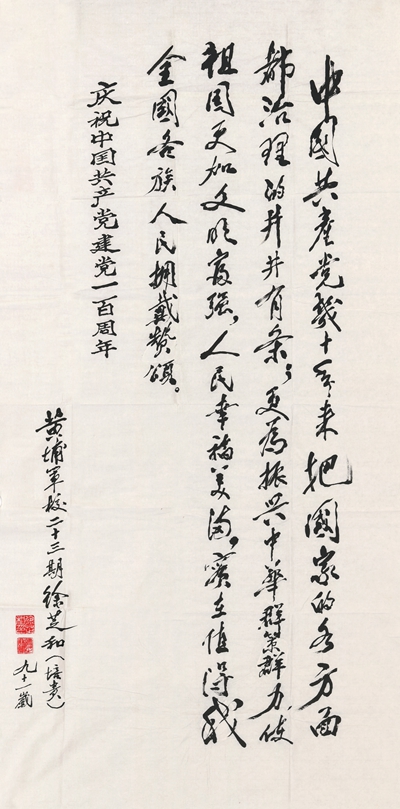 中國共產党幾十年来把國家的各方面
都治理的井井有条；更為振兴中华群策群力使
祖国更加文明富强，人民幸福美满。实在值得我
全國各族人民拥戴赞頌。
庆祝中国共产党建党一百周年
黄埔軍校二十三期徐芝和（培贵）
九十一歲